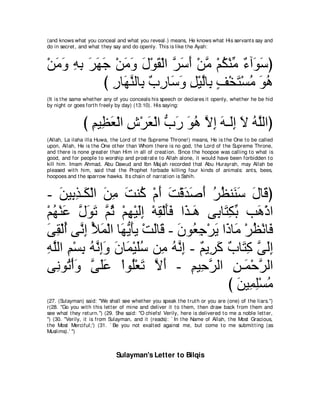 (and knows what you conceal and what you reveal.) means, He knows what His servants say and
do in secret, and what they say and do openly. This is like the Ayah:
(سَوَآءٌ مِّنْكُمْ مَّنْ أَسَرَّ الْقَوْلَ وَمَنْ جَهَرَ بِهِ وَمَنْ
هُوَ مُسْتَخْفٍ بِالَّيْلِ وَسَارِبٌ بِالنَّهَارِ )
(It is the same whether any of you conceals his speech or declares it openly, whether he be hid
by night or goes forth freely by day) (13:10). His saying:
(اللَّهُ لاَ إِلَـهَ إِلاَّ هُوَ رَبُّ الْعَرْشِ الْعَظِيمِ )
(Allah, La ilaha illa Huwa, the Lord of the Supreme Throne!) means, He is the One to be called
upon, Allah, He is the One other than Whom there is no god, the Lord of the Supreme Throne,
and there is none greater than Him in all of creation. Since the hoopoe was calling to what is
good, and for people to worship and prostrate to Allah alone, it would have been forbidden to
kill him. Imam Ahmad, Abu Dawud and Ibn Majah recorded that Abu Hurayrah, may Allah be
pleased with him, said that the Prophet forbade killing four kinds of animals: ants, bees,
hoopoes and the sparrow hawks. Its chain of narration is Sahih.
(قَالَ سَنَنظُرُ أَصَدَقْتَ أَمْ كُنتَ مِنَ الْكَـذِبِينَ -
اذْهَب بِّكِتَابِى هَـذَا فَأَلْقِهْ إِلَيْهِمْ ثُمَّ تَوَلَّ عَنْهُمْ
فَانْظُرْ مَاذَا يَرْجِعُونَ - قَالَتْ يأَيُّهَا الْمَلأ إِنِّى أُلْقِىَ
إِلَىَّ كِتَابٌ كَرِيمٌ - إِنَّهُ مِن سُلَيْمَانَ وَإِنَّهُ بِسْمِ اللَّهِ
الرَّحْمَـنِ الرَّحِيمِ - أَلاَّ تَعْلُواْ عَلَىَّ وَأْتُونِى
مُسْلِمِينَ )
(27. (Sulayman) said: "We shall see whether you speak the truth or you are (one) of the liars.")
(28. "Go you with this letter of mine and deliver it to them, then draw back from them and
see what they return.") (29. She said: "O chiefs! Verily, here is delivered to me a noble letter,
") (30. "Verily, it is from Sulayman, and it (reads): `In the Name of Allah, the Most Gracious,
the Most Merciful;') (31. `Be you not exalted against me, but come to me submitting (as
Muslims).'")
Sulayman's Letter to Bilqis